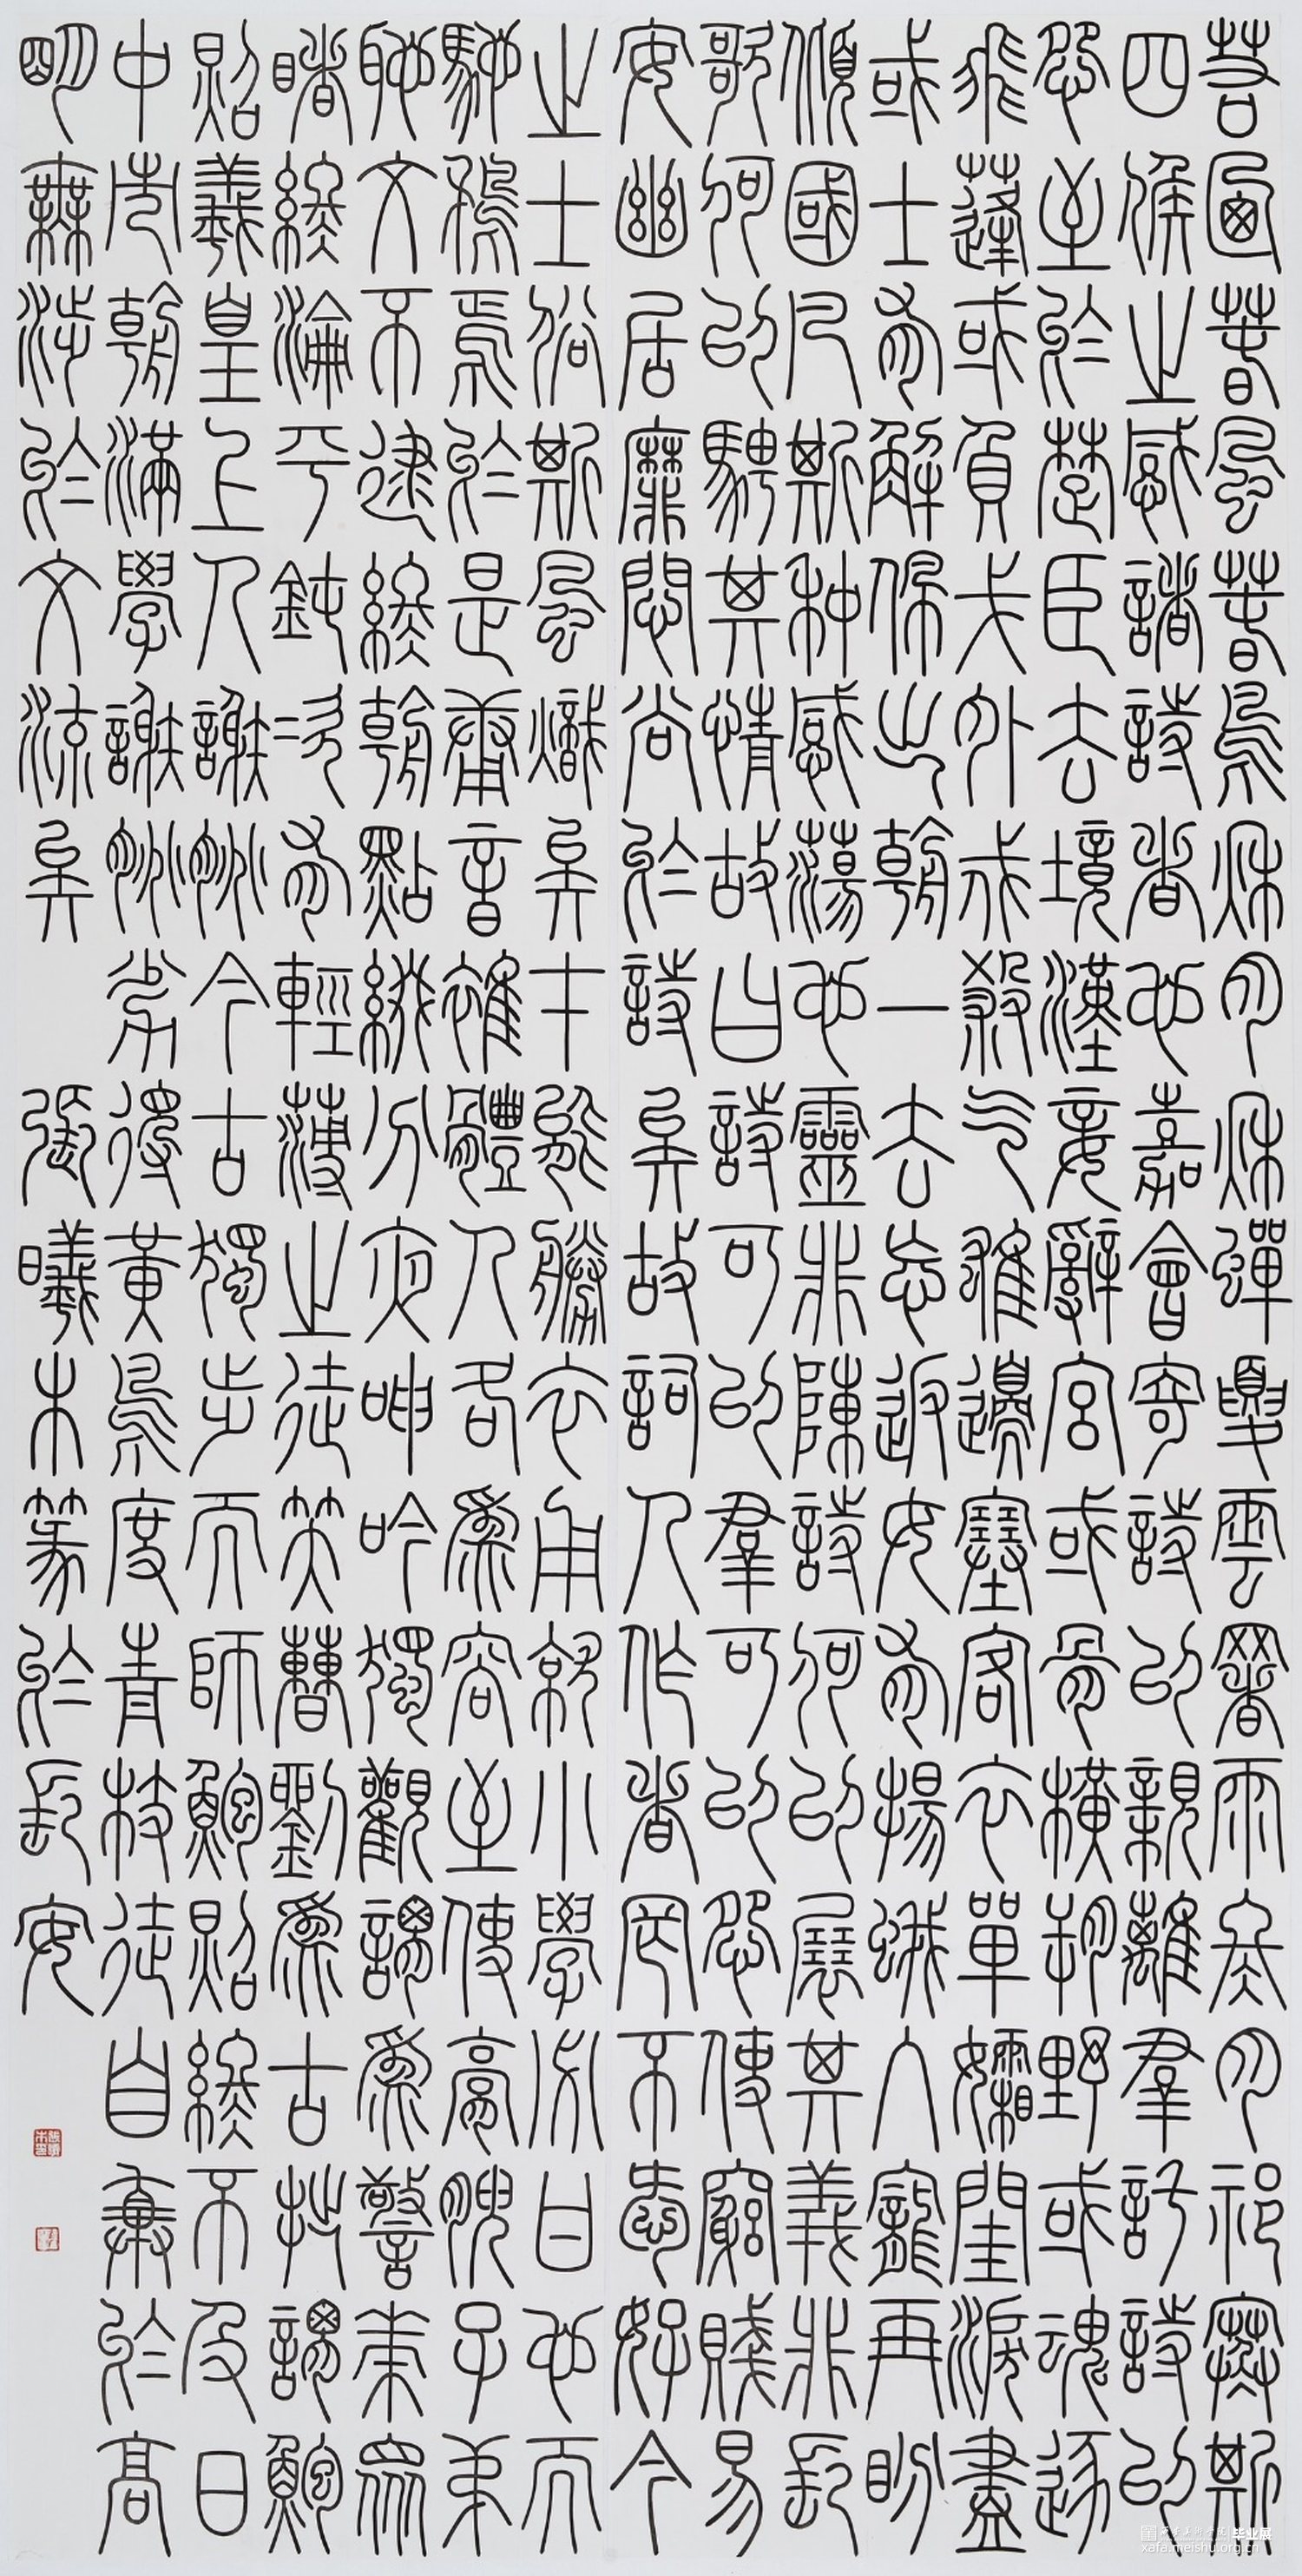 若迺春風春鳥秋月秋蟬夏雲暑雨冬月祁寒斯
四候之感諸詩者也嘉會寄詩以親離群託詩以
怨至於楚臣去境漢妾辭宮或骨橫朔野或魂逐
飛蓬或負戈外戍殺气雄邊塞客衣單孀閨淚盡
或士有解佩出朝一去忘返女有揚蛾入寵再盼
傾國凡斯种感蕩心靈非陳詩何以展其義非長
歌何以騁其情故曰詩可以群可以怨使窮賤易
安幽居靡悶尚於詩矣故詞人作者罔不愛好今
之士俗斯風熾矣才能勝衣甫就小學必甘心而
馳騖焉於是庸音雜體人各為容至使膏腴子弟
恥文不逮終朝點綴分夜呻吟獨觀謂為警策眾
睹終淪平鈍次有輕薄之徒笑曹劉為古拙謂鮑
照羲皇上人謝朓今古獨步而師鮑照終不及日
中市朝滿學謝朓劣得黃鳥度青枝徒自棄於高
明無涉於文流矣 張曦木篆於長安
毕业展
xafa.meishu.org.cn